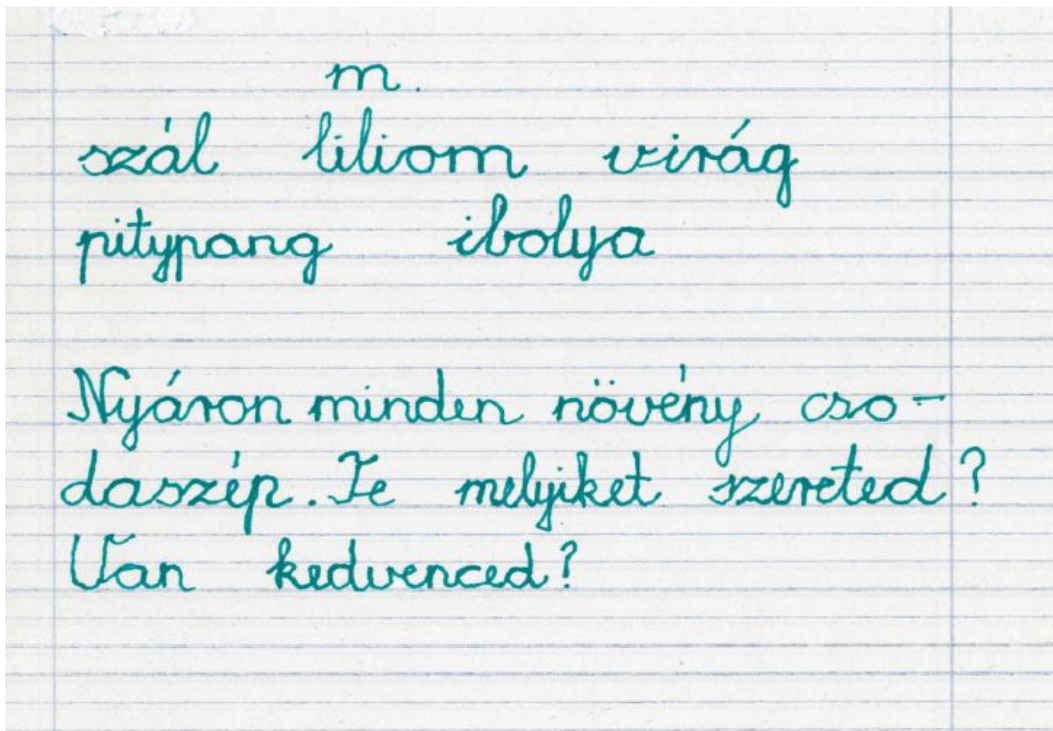 m.
szál liliom virág
pitypang ibolya
Nyáron minden növény cso-
daszép. Te melyiket szereted?
Van kedvenced?